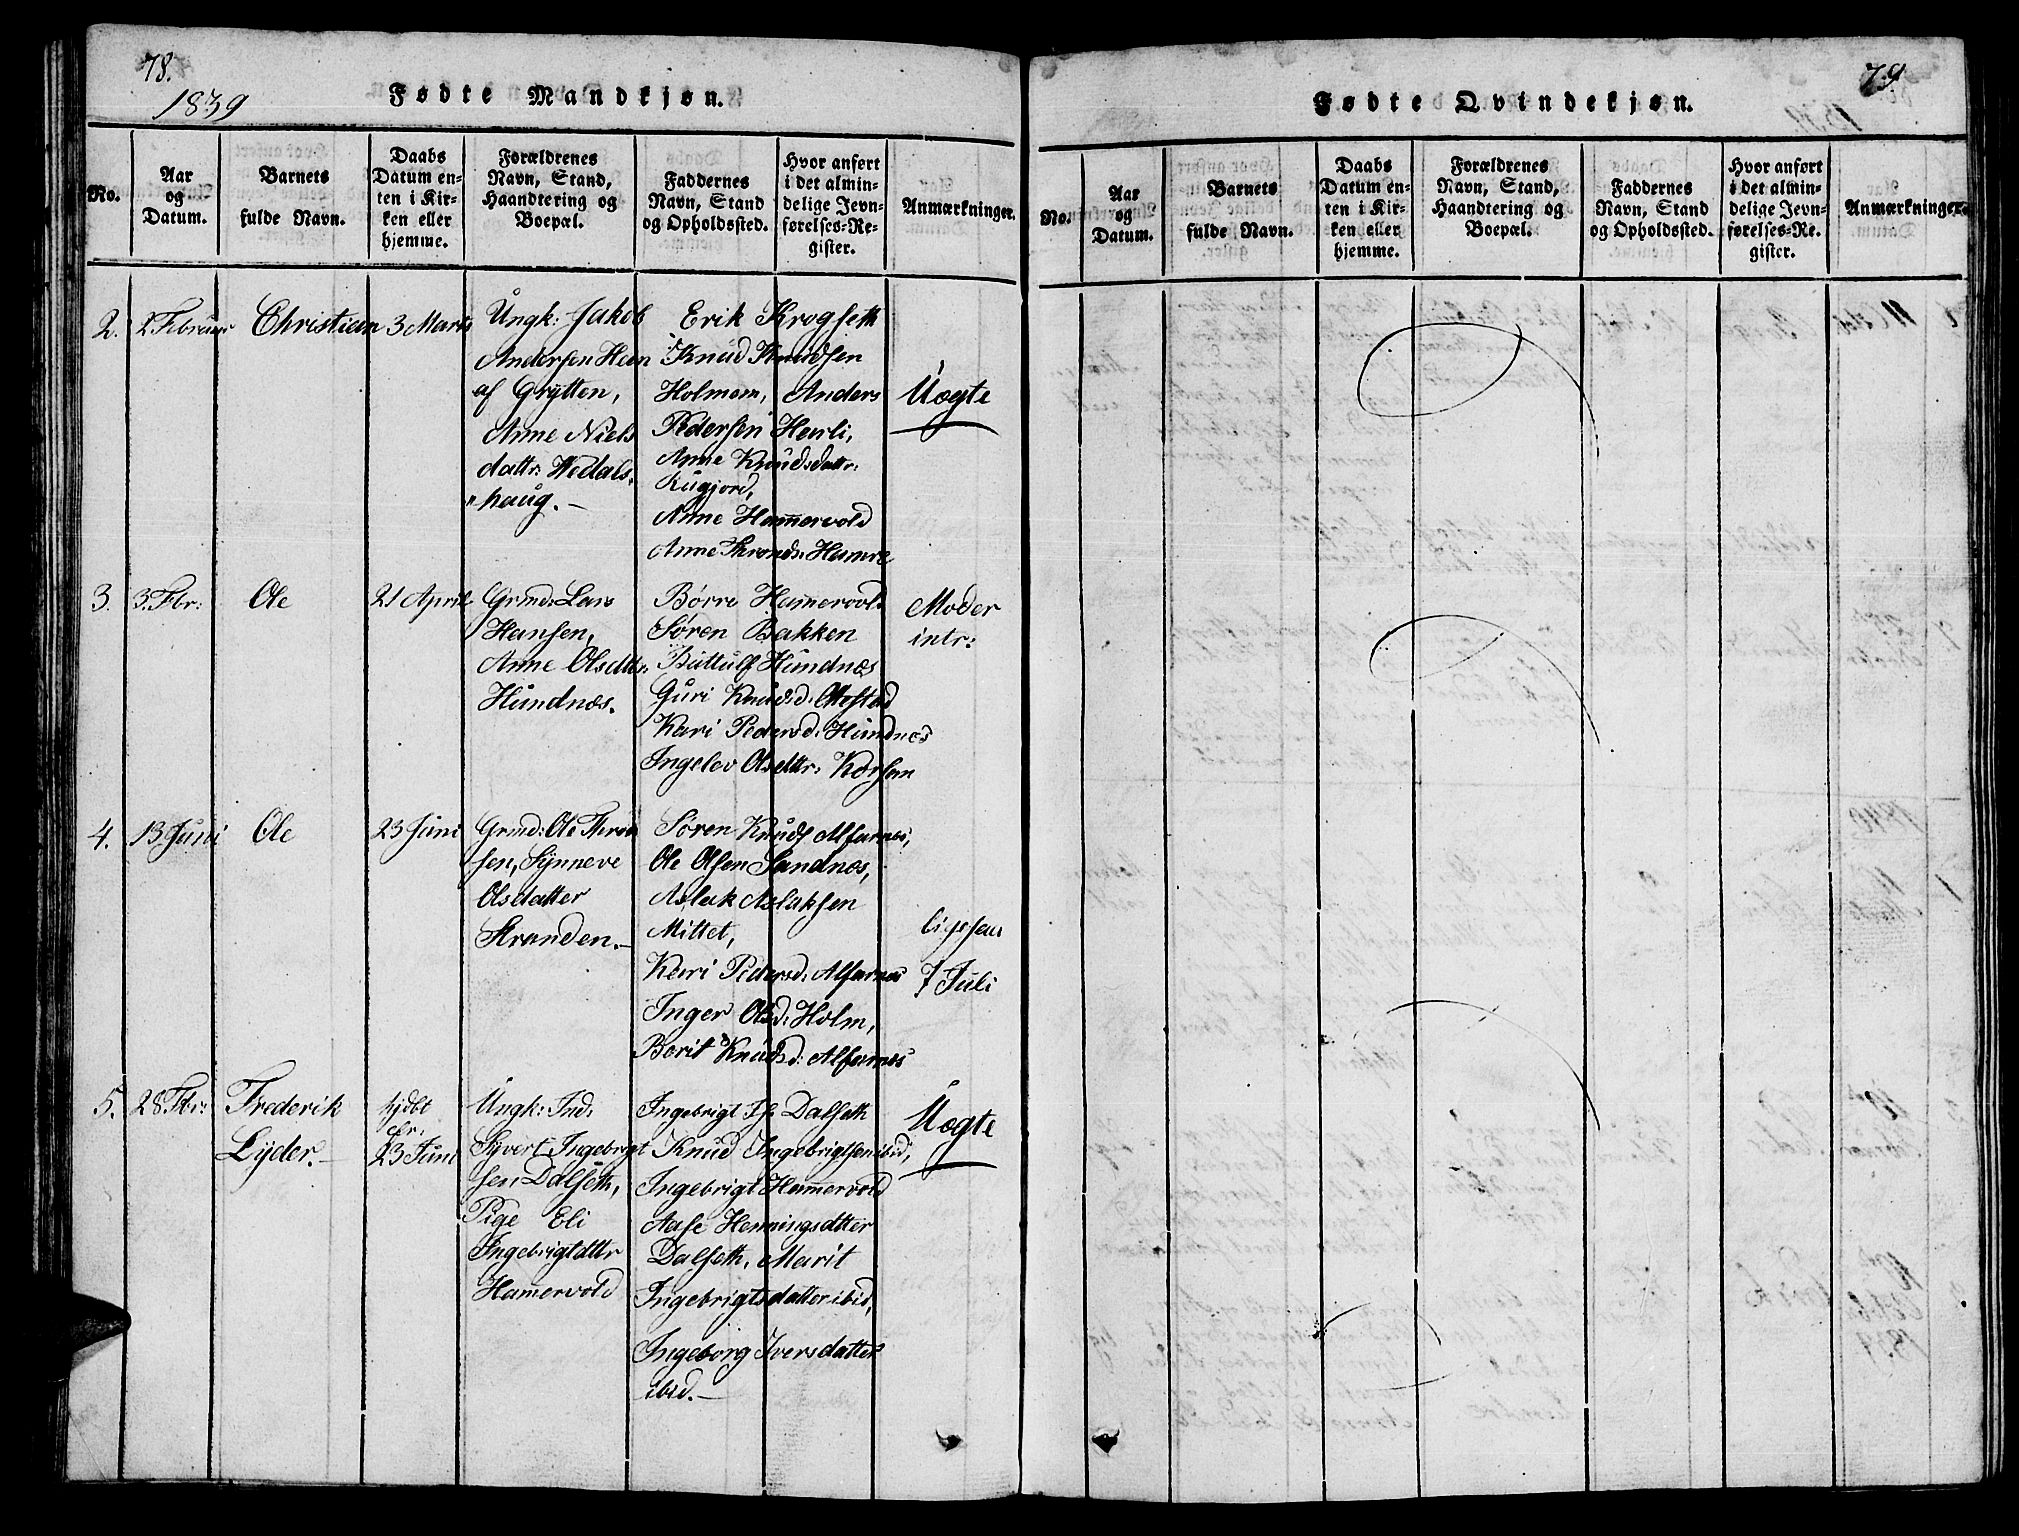 78.
1839
Fødte Mandkjøn.
No.
Aar
og
Datum.
Barnets
fulde Navn.
Daabs
Datum en-
ten i Kir-
ken eller
hjemme.
Forældrenes
Navn, Stand,
Haandtering og
Boepæl.
Faddernes
Navn, Stand
og Opholdssted.
Hvor anført
i det almin-
delige Jevn-
førelses-Re-
gister.
Anmærkninger.
2.
2 Februar
Christian
3 Marts
Ungk: Jakob
Andersen Heen
af Grytten,
Anne Niels
dattr: Hedals-
haug. –
Erik Krogseth
Knud Knudsen
Holmem, Anders
Pedersen Herli,
Anne Knudsdattr:
Kugjord,
Anne Hammervold
Anne Thronds: Hamre
Uægte
3.
3. Fbr:
Ole
21 April
Grmd: Lars
Hansen,
Anne Olsdttr:
Hundnæs.
Børre Hamervold
Søren Bakken
Buttulf Hundnæs
Guri Knuds:d:
Kari Pedersd: Hundnæs
Ingelev Olsdttr: Korsan
Moder
intr:
4.
13. Juni
Ole
23 Juni
Grmd: Ole
sen, Synneve
Olsdatter
Stranden. –
Søren Knuds Alfarnæs,
Ole Olsen Sandnæs,
Aslak Aslaksen
Mittet,
Kari Pedersd: Alfarnæs
Inger Olsd: Holm,
Borit Knudsd: Alfarnæs
7 Juli
5.
28. Fbr:
Frederik
Lyder. –
hjdbt
23 Juni
Ungk: Ind:
Syvert Ingebrigt
sen Dalseth,
Pige Eli
Ingebrigtdttr
Hamervold
Ingebrigt Dalseth
Knud Ingebrigtsen ibid,
Ingebrigt Hammervold
Aase Henningsdtter
Dalseth, Marit
Ingebrigtsdatter ibid,
Ingeborg Iversdatter
ibid. –
Uægte
79
Fødte Qvindekjøn.
No.
Aar
og
Datum.
Barnets
fulde Navn.
Daabs
Datum en-
ten i Kir-
ken eller
hjemme.
Forældrenes
Navn, Stand,
Haandtering og
Boepæl.
Faddernes
Navn, Stand
og Opholdssted.
Hvor anført
i det almin-
delige Jevn-
førelses-Re-
gister.
Anmærkninger.